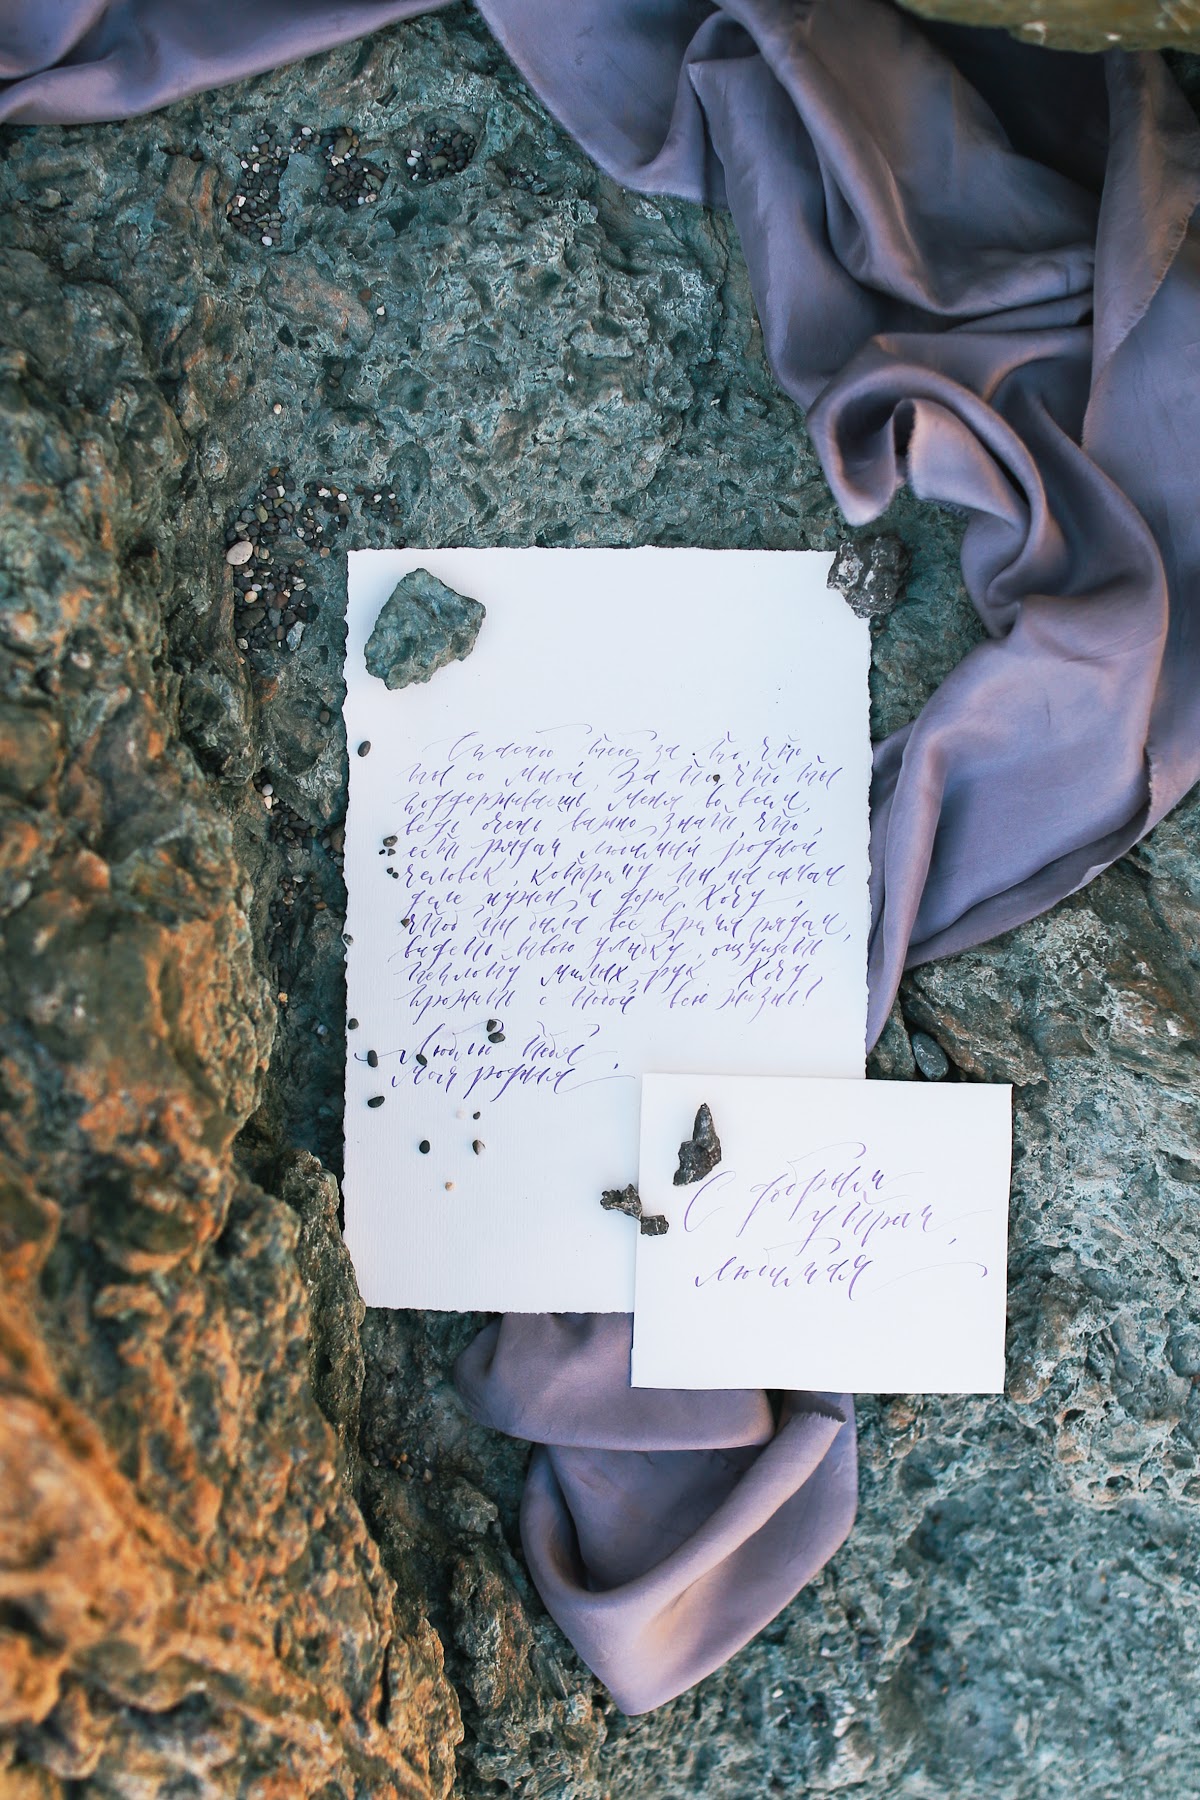 Спасибо тебе за то, что
ты со мной. За то, что ты
поддерживаешь меня во всём,
ведь очень важно знать, что
есть рядом любимый родной
человек, которому ты на самом
деле нужен и дорог. Хочу,
чтоб ты была всё время рядом,
видеть твою улыбку, ощущать
теплоту милых рук. Хочу
прожить с тобой всю жизнь!
Люблю тебя,
моя родная.
С добрым
утром,
любимая